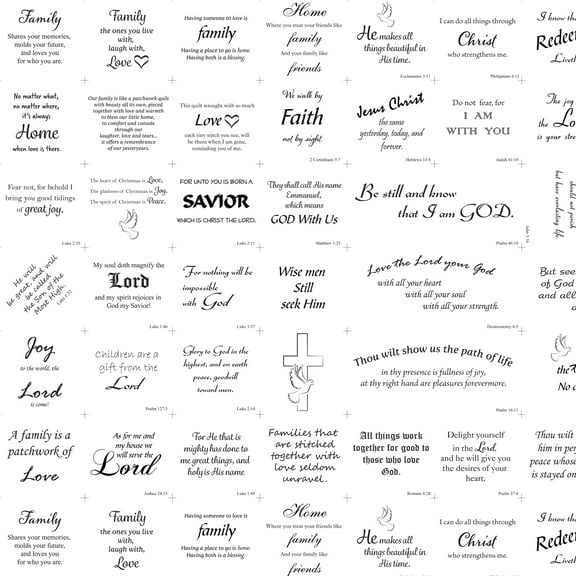 Family
Shares your memories,
molds your future,
and loves you
for who you are.
Family
the ones you live
with,
laugh with,
Love
Having someone to love is
family
Having a place to go is home.
Having both is a blessing
Home
Where you treat your friends like
family
And your family like
friends
He makes all
things beautiful in
His time.
Ecclesiastes 3:11
I can do all things through
Christ
who strengthens me.
Philippians 4:13
I know tha
Redee
Liveth
No matter what,
no matter where,
it's always
Home
when love is there.
Our family is like a patchwork quilt
with beauty all its own, pieced
together with love and warmth
to bless our little home,
to comfort and console
through our
laughter, love and tears...
it offers a remembrance
of our yesteryears.
This quilt wrought with so much
Love
each tiny stitch you see, will
be there when I am gone,
reminding you of me.
We walk by
Faith
not by sight
2 Corinthians 5:7
Jesus Christ
the same
yesterday, today, and
forever.
Hebrews 13:8
Do not fear, for
I AM
WITH YOU
Isaiah 41:10
The joy
the Lo
is your s
Fear not, for behold I
bring you good tidings
of great joy.
Luke 2:10
The heart of Christmas is Love,
The gladness of Christmas is Joy,
The spirit of Christmas is Peace.
FOR UNTO YOU IS BORN A
SAVIOR
WHICH IS CHRIST THE LORD.
Luke 2:11
They shall call His name
Emmanuel,
which means
GOD With Us
Matthew 1:23
Be still and know
that I am GOD.
Psalm 46:10
should not perish
but have everlasting life.
John 3:16
He will
be great, and will
be called
the Son of the
Most High.
Luke 1:32
My soul doth magnify the
Lord
and my spirit rejoices in
God my Savior!
Luke 1:46
For nothing will be
impossible
with God
Luke 1:37
Wise men
Still
seek Him
Love the Lord your God
with all your heart
with all your soul
with all your strength.
Deuteronomy 6:5
But see
of God
and all
a
Joy
to the world, the
Lord
is come!
Children are a
gift from the
Lord
Psalm 127:3
Glory to God in the
highest, and on earth
peace, goodwill
toward men.
Luke 2:14
Thou wilt show us the path of life
in thy presence is fullness of joy,
at thy right hand are pleasures forevermore.
Psalm 16:11
the
No
A family is a
patchwork of
Love
As for me and
my house we
will serve the
Lord
Joshua 24:15
For He that is
mighty has done to
me great things, and
holy is His name
Luke 1:49
Families that
are stitched
together with
love seldom
unravel.
All things work
together for good to
those who love
God.
Romans 8:28
Delight yourself
in the Lord,
and he will give you
the desires of your
heart.
Psalm 37:4
Thou wilt
him in per
peace whose
is stayed on
Family
Shares your memories,
molds your future,
and loves you
for who you are.
Family
the ones you live
with,
laugh with,
Love
Having someone to love is
family
Having a place to go is home.
Having both is a blessing
Home
Where you treat your friends like
family
And your family like
friends
He makes all
things beautiful in
His time.
I can do all things through
Christ
who strengthens me.
I know tha
Redee
Liveth